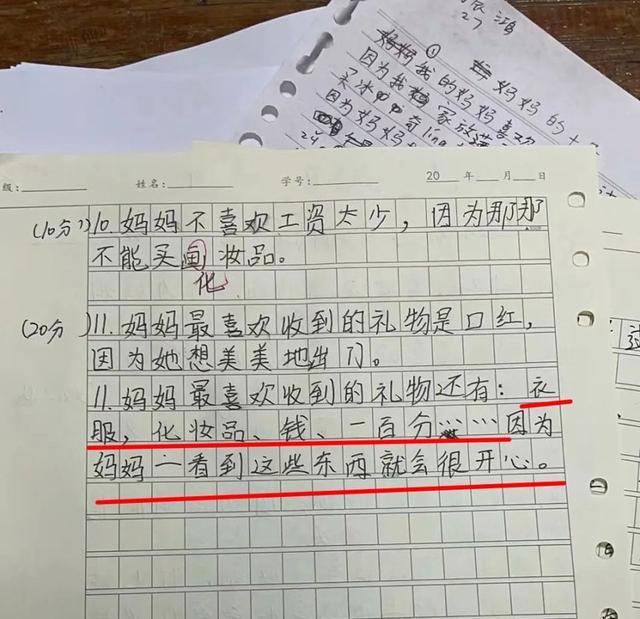 27
① 妈妈的
我的妈妈喜欢
因为我家放
买冰 奇ling
因为妈妈
级: 姓名: 学号: 20 年 月 日
(10分)10.妈妈不喜欢工资太少,因为那那
不能买画妆品。
化
(20分)11.妈妈最喜欢收到的礼物是口红,
因为她想美美地出门。
11.妈妈最喜欢收到的礼物还有:衣
服,化妆品、钱、一百分……因为
妈妈一看到这些东西就会很开心。